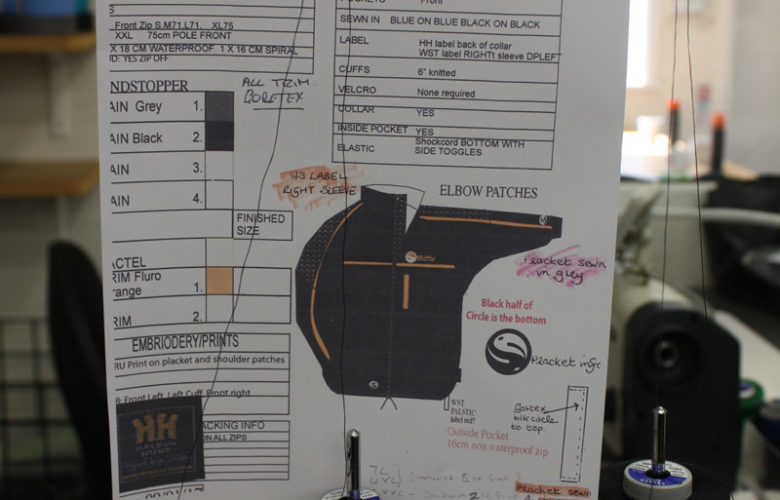 S
Front Zip S.M71.L71. XL75
XXL 75cm POLE FRONT
X 18 CM WATERPROOF 1 X 16 CM SPIRAL
ID: YES ZIP OFF
NDSTOPPER
ALL TRIM.
GORETEX
AIN Grey 1.
AIN Black 2.
AIN 3.
AIN 4.
FINISHED
SIZE
ACTEL
RIM Fluro
ange 1.
RIM 2.
EMBRIODERY/PRINTS
RU Print on placket and shoulder patches
8: Front Left, Left Cuff, Front right
ACKING INFO
ON ALL ZIPS
HH
Front
SEWN IN BLUE ON BLUE BLACK ON BLACK
LABEL HH label back of collar
WST label RIGHTt sleeve DPLEFT
CUFFS 6" knitted
VELCRO None required
COLLAR YES
INSIDE POCKET YES
ELASTIC Shockcord BOTTOM WITH
SIDE TOGGLES
WS LABEL
RIGHT SLEEVE
ELBOW PATCHES
Placket sewn
in grey
Black half of
Circle is the bottom
Placket
WST
PALSTIC
label red?
Outside Pocket
16cm non waterproof zip
Gortex
blk circle
to top.
Placket sewn